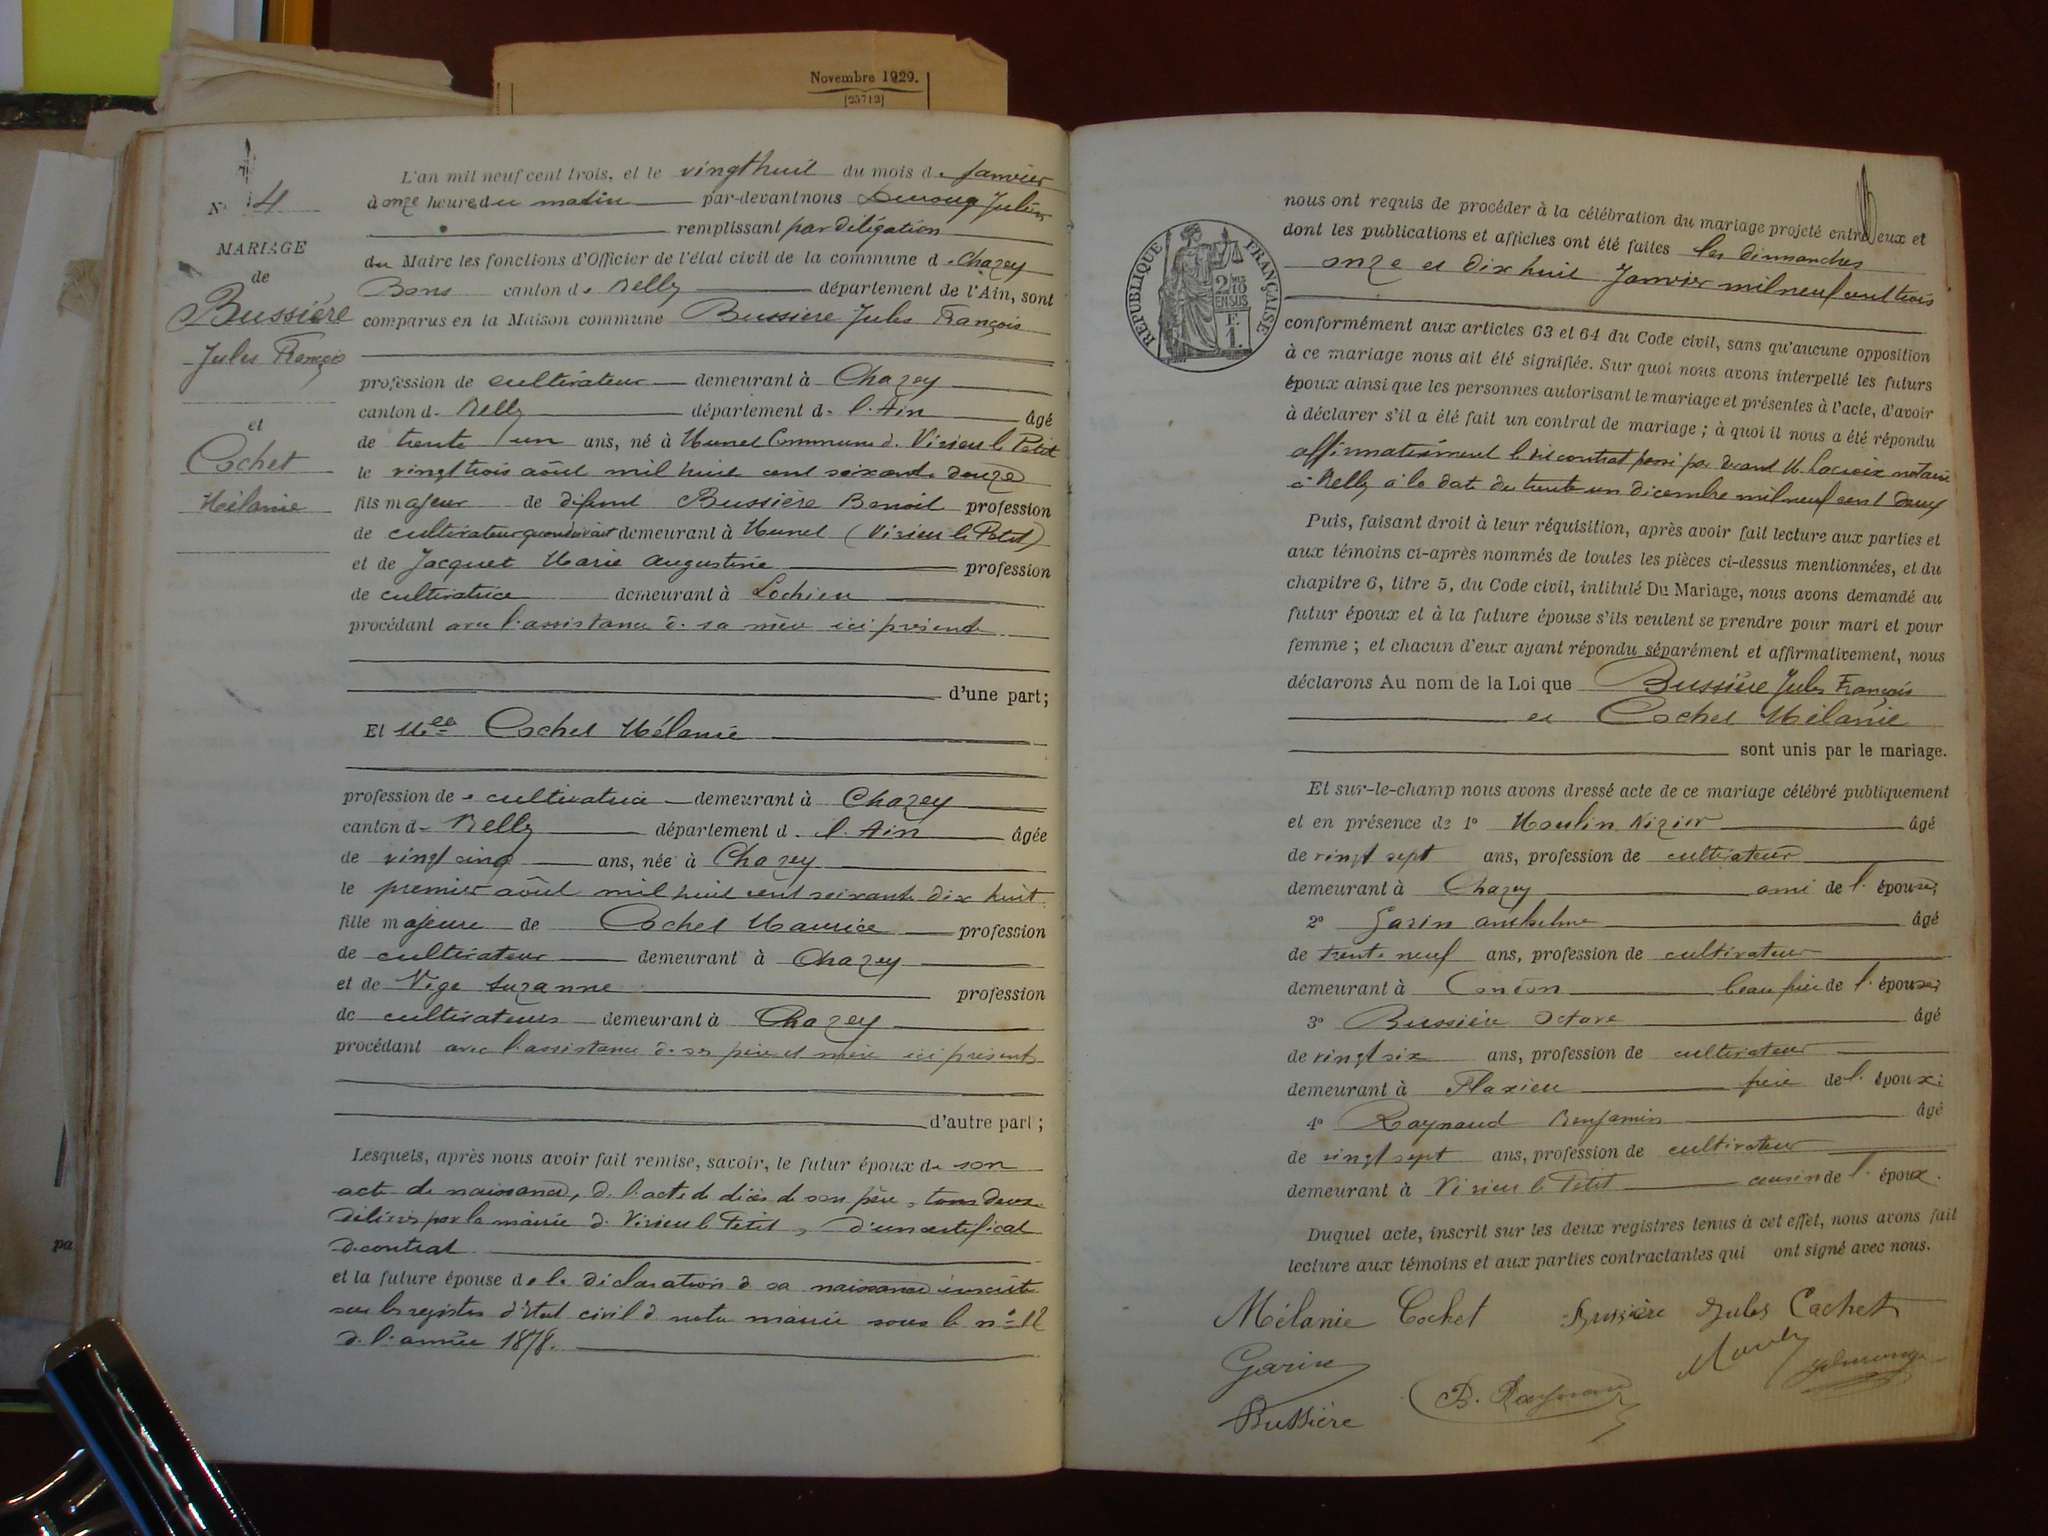 Novembre 1929.
[25712]
N° 4
MARIAGE
de
Bussière
Jules François
et
Cochet
Mélanie
L'an mil neuf cent trois, et le vingt huit du mois de Janvier
à onze heures du matin par-devant nous
remplissant par délégation
du Maire les fonctions d'Officier de l'état civil de la commune de Chazey
Bons canton de Belley département de l'Ain, sont
comparus en la Maison commune Bussière Jules François
profession de cultivateur demeurant à Chazey
canton de Belley département de l'Ain âgé
de trente un ans, né à Munet Commune de Virieu le Petit
le vingt trois août mil huit cent soixante douze
fils majeur de défunt Bussière Benoit profession
de cultivateur quand vivait demeurant à Munet (Virieu le Petit)
et de Jacquet Marie Augustine profession
de cultivatrice demeurant à Lochieu
procédant avec l'assistance de sa mère ici présente
d'une part;
Et Mlle Cochet Mélanie
profession de cultivatrice demeurant à Chazey
canton de Belley département de l'Ain âgée
de vingt cinq ans, née à Chazey
le premier août mil huit cent soixante dix huit
fille majeure de Cochet Maurice profession
de cultivateur demeurant à Chazey
et de Vige Suzanne profession
de cultivateurs demeurant à Chazey
procédant avec l'assistance de ses père et mère ici présents
d'autre part;
Lesquels, après nous avoir fait remise, savoir, le futur époux de son
acte de naissance, de l'acte de décès de son père, tous deux
délivrés par la mairie de Virieu le Petit, d'un certificat
de contrat
et la future épouse de la déclaration de sa naissance inscrite
sur les registres d'état civil de notre mairie sous le n° 12
de l'année 1878.
RÉPUBLIQUE FRANÇAISE
2 10MES
EN SUS
F.
1.
nous ont requis de procéder à la célébration du mariage projeté entre eux et
dont les publications et affiches ont été faites les dimanches
onze et dix huit Janvier mil neuf cent trois
conformément aux articles 63 et 64 du Code civil, sans qu'aucune opposition
à ce mariage nous ait été signifiée. Sur quoi nous avons interpellé les futurs
époux ainsi que les personnes autorisant le mariage et présentes à l'acte, d'avoir
à déclarer s'il a été fait un contrat de mariage; à quoi il nous a été répondu
affirmativement le dit contrat passé par devant M. Lacroix notaire
à Belley à la date du trente un décembre mil neuf cent deux
Puis, faisant droit à leur réquisition, après avoir fait lecture aux parties et
aux témoins ci-après nommés de toutes les pièces ci-dessus mentionnées, et du
chapitre 6, titre 5, du Code civil, intitulé Du Mariage, nous avons demandé au
futur époux et à la future épouse s'ils veulent se prendre pour mari et pour
femme; et chacun d'eux ayant répondu séparément et affirmativement, nous
déclarons Au nom de la Loi que Bussière Jules François
et Cochet Mélanie
sont unis par le mariage.
Et sur-le-champ nous avons dressé acte de ce mariage célébré publiquement
et en présence de 1° Moulin Nizier âgé
de vingt sept ans, profession de cultivateur
demeurant à Chazey ami de l'épouse;
2° Garin Anthelme âgé
de trente neuf ans, profession de cultivateur
demeurant à Contion beau frère de l'épouse;
3° Bussière Octave âgé
de vingt six ans, profession de cultivateur
demeurant à Flaxieu frère de l'époux;
4° Raynaud Benjamin âgé
de vingt sept ans, profession de cultivateur
demeurant à Virieu le Petit cousin de l'époux.
Duquel acte, inscrit sur les deux registres tenus à cet effet, nous avons fait
lecture aux témoins et aux parties contractantes qui ont signé avec nous.
Mélanie Cochet Bussière Jules Cachet
Garin
B. Raynaud
Bussière